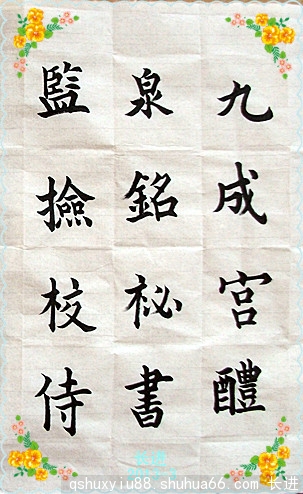 九成宮醴
泉銘祕書
監撿校侍
qshuxyiu88.shuhua66.com 长进